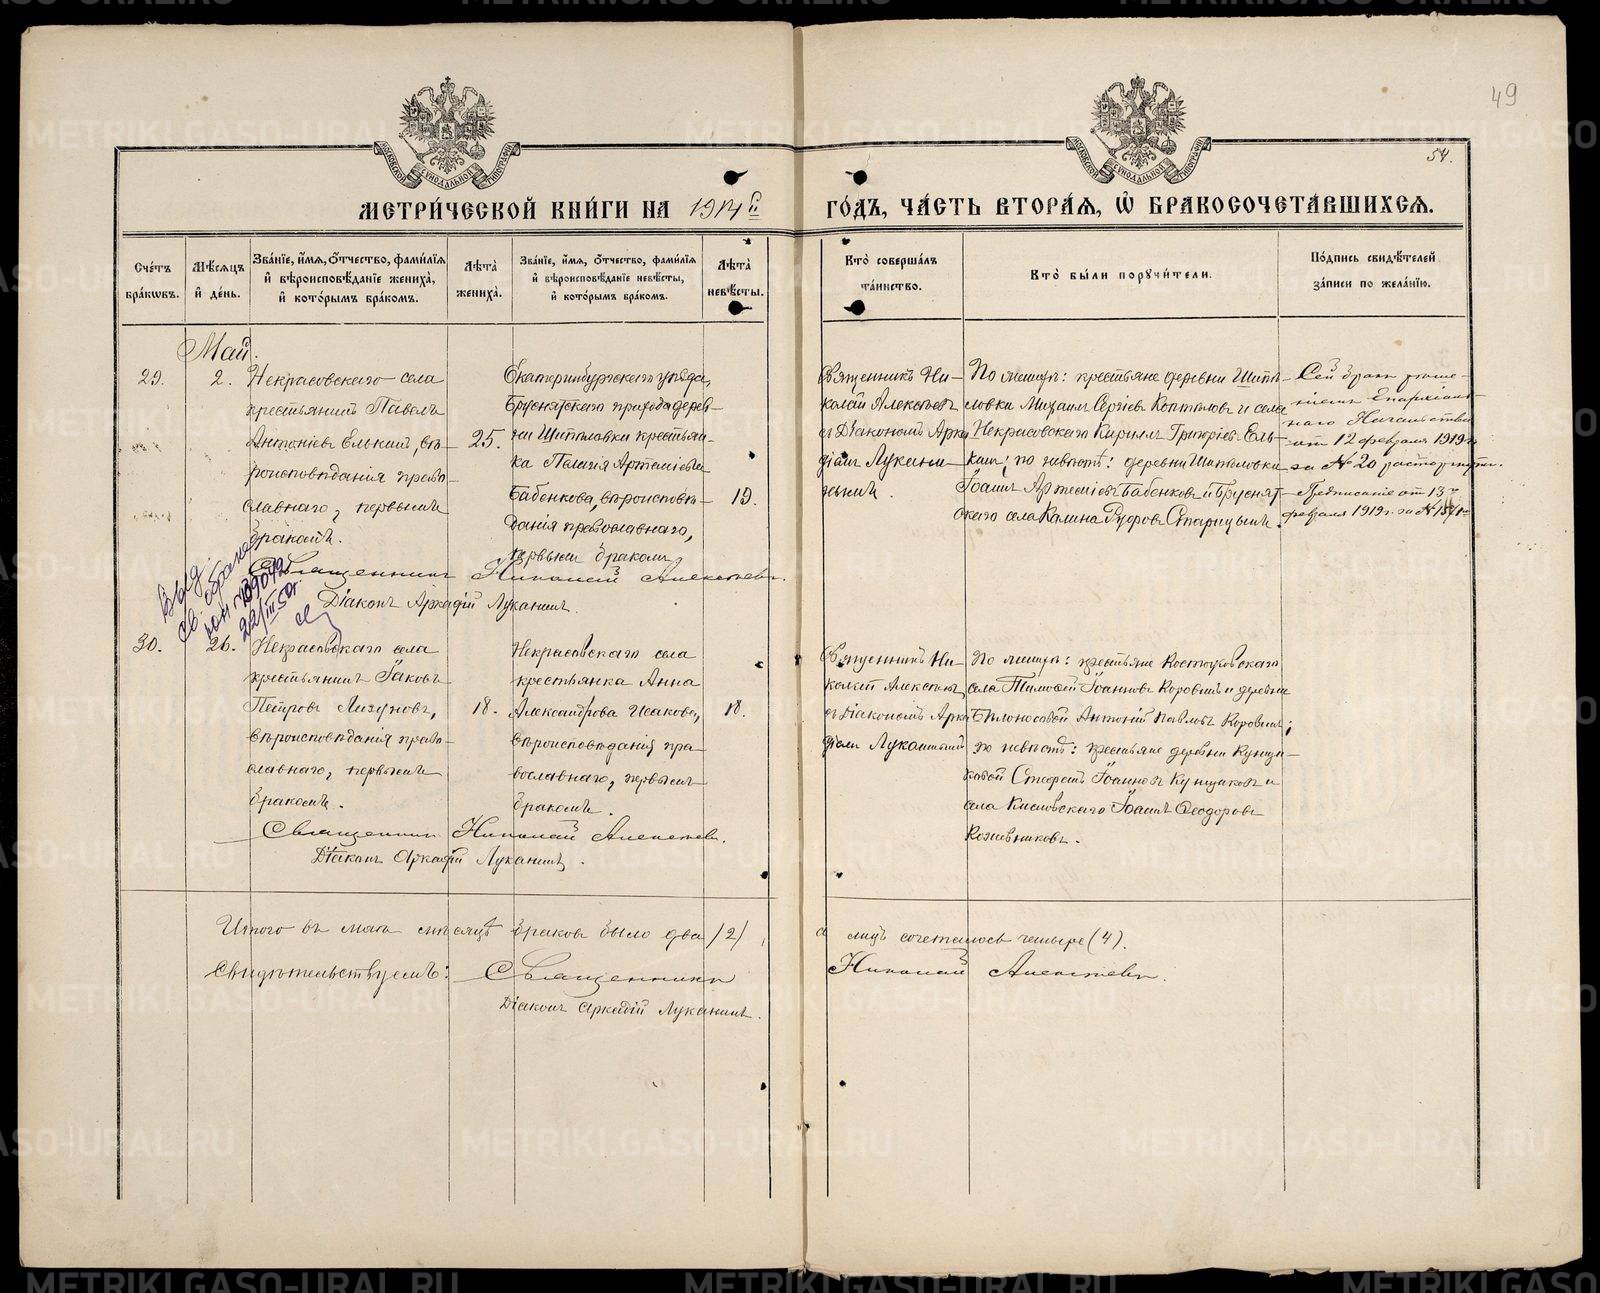 49
54.
МОСКОВСКОЙ СѴНОДАЛЬНОЙ ТИПОГРАФІИ
МОСКОВСКОЙ СѴНОДАЛЬНОЙ ТИПОГРАФІИ
МЕТРИ́ЧЕСКОЙ КНИ́ГИ НА 1914 й
ГО́ДЪ, ЧА́СТЬ ВТОРА́Я, Ѽ БРАКОСОЧЕТА́ВШИХСЯ.
Сче́тъ бра́кѡвъ.
Мѣ́сяцъ и҆ де́нь.
Зва́нїе, и҆́мя, ѻ҆́тчество, фами́лїя и҆ вѣроисповѣ́данїе жениха̀, и҆ кото́рымъ бра́комъ.
Лѣ́та жениха̀.
Зва́нїе, и҆́мя, ѻ҆́тчество, фами́лїя и҆ вѣроисповѣ́данїе невѣ́сты, и҆ кото́рымъ бра́комъ.
Лѣ́та невѣ́сты.
Кто̀ соверша́лъ та́инство.
Кто̀ бы́ли порꙋчи́тели.
По́дпись свидѣ́телей за́писи по жела́нїю.
Май.
29.
2.
Некрасовскаго села
крестьянинъ Павелъ
Антоніевъ Елькинъ, вѣ-
роисповѣданія право-
славнаго, первымъ
бракомъ.
25.
Екатеринбургскаго уѣзда,
Бруснятскаго прихода дерев-
ни Шипиловки крестьян-
ка Пелагія Артеміева
Бабенкова, вѣроисповѣ-
данія православнаго,
первымъ бракомъ.
19.
Священникъ Ни-
колай Алексѣевъ
съ Діакономъ Арка-
діемъ Лукани-
нымъ.
По женихѣ: крестьяне деревни Шипи-
ловки Михаилъ Сергіевъ Коптяловъ и села
Некрасовскаго Кириллъ Григоріевъ Ель-
кинъ; по невѣстѣ: деревни Шипиловки
Іоаннъ Артеміевъ Бабенковъ и Бруснят-
скаго села Калина Старицынъ.
Сей бракъ рѣше-
ніемъ Епархіаль-
наго Начальства
отъ 12 февраля 1919 г.
за № 20 расторгнутъ.
Предписаніе отъ 13
февраля 1919 г. за №
Священникъ Николай Алексѣевъ.
Діаконъ Аркадій Луканинъ.
Выд.
св. о браке
22/III 50г.
30.
26.
Некрасовскаго села
крестьянинъ Іаковъ
Петровъ Лизуновъ,
вѣроисповѣданія право-
славнаго, первымъ
бракомъ.
18.
Некрасовскаго села
крестьянка Анна
Александрова Исакова,
вѣроисповѣданія пра-
вославнаго, первымъ
бракомъ.
18.
Священникъ Ни-
колай Алексѣевъ
съ Діакономъ Арка-
діемъ Луканинымъ
По женихѣ: крестьяне
села Тимоѳей Іоанновъ Коровинъ и деревни
Бѣлоносовой Антоній Павловъ Коровинъ;
по невѣстѣ: крестьяне деревни Кунща-
ковой Стефанъ Іоанновъ Кунщаковъ и
села Кисловскаго Іоаннъ Ѳеодоровъ
Кожевниковъ.
Священникъ Николай Алексѣевъ.
Діаконъ Аркадій Луканинъ.
Итого въ маѣ мѣсяцѣ браковъ было два (2),
а лицъ сочеталось четыре (4).
Свидѣтельствуемъ: Священникъ
Николай Алексѣевъ.
Діаконъ Аркадій Луканинъ.
METRIKI.GASO-URAL.RU